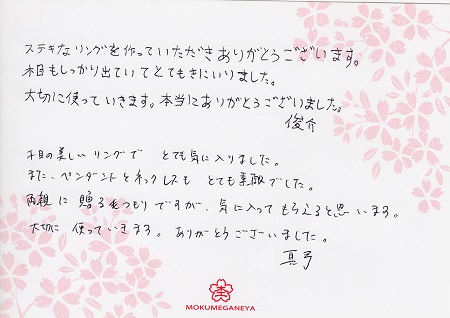 ステキなリングを作っていただきありがとうございます。
木目もしっかり出ていてとてもきにいりました。
大切に使っていきます。本当にありがとうございました。
俊介
木目の美しいリングで とても気に入りました。
また、ペンダントとネックレスも とても素敵でした。
両親に 贈るつもりですが、気に入って もらえると思います。
大切に 使っていきます。ありがとうございました。
真弓
MOKUMEGANEYA